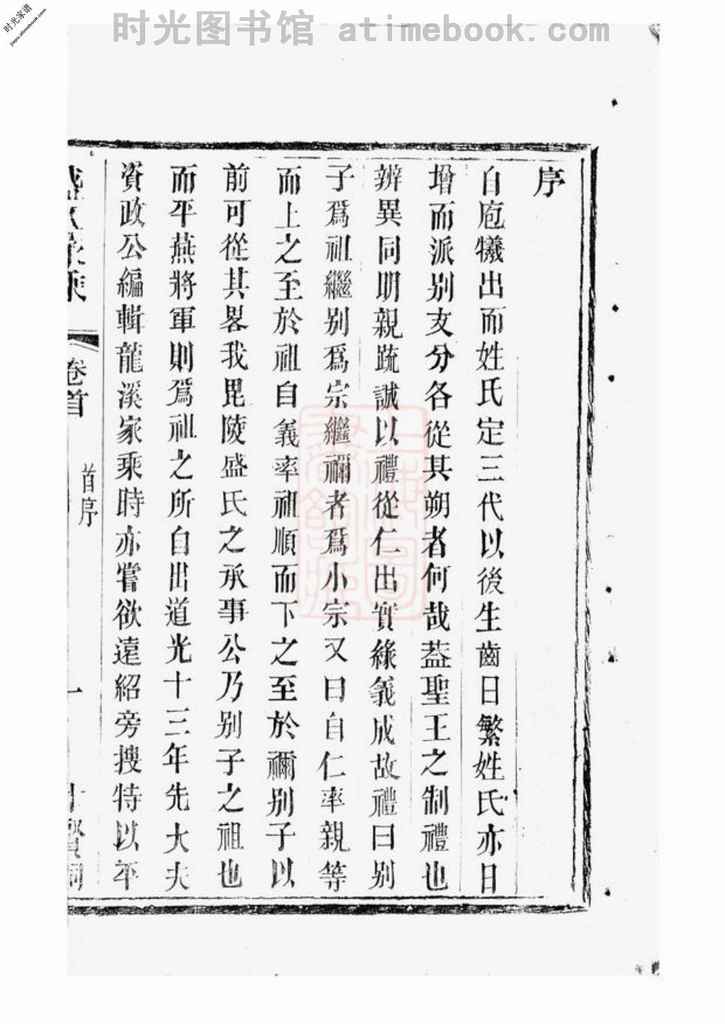 时光图书馆 atimebook.com
时光家谱
序
自庖犧出而姓氏定三代以後生齒日繁姓氏亦日
增而派别支分各從其朔者何哉蓋聖王之制禮也
辨異同明親疏誠以禮從仁出實緣義成故禮曰别
子爲祖繼别爲宗繼禰者爲小宗又曰自仁率親等
而上之至於祖自義率祖順而下之至於禰别子以
前可從其畧我毘陵盛氏之承事公乃别子之祖也
而平燕將軍則爲祖之所自出道光十三年先大夫
資政公編輯龍溪家乘時亦嘗欲遠紹旁搜特以年
盛氏家乘
卷首
首序
一